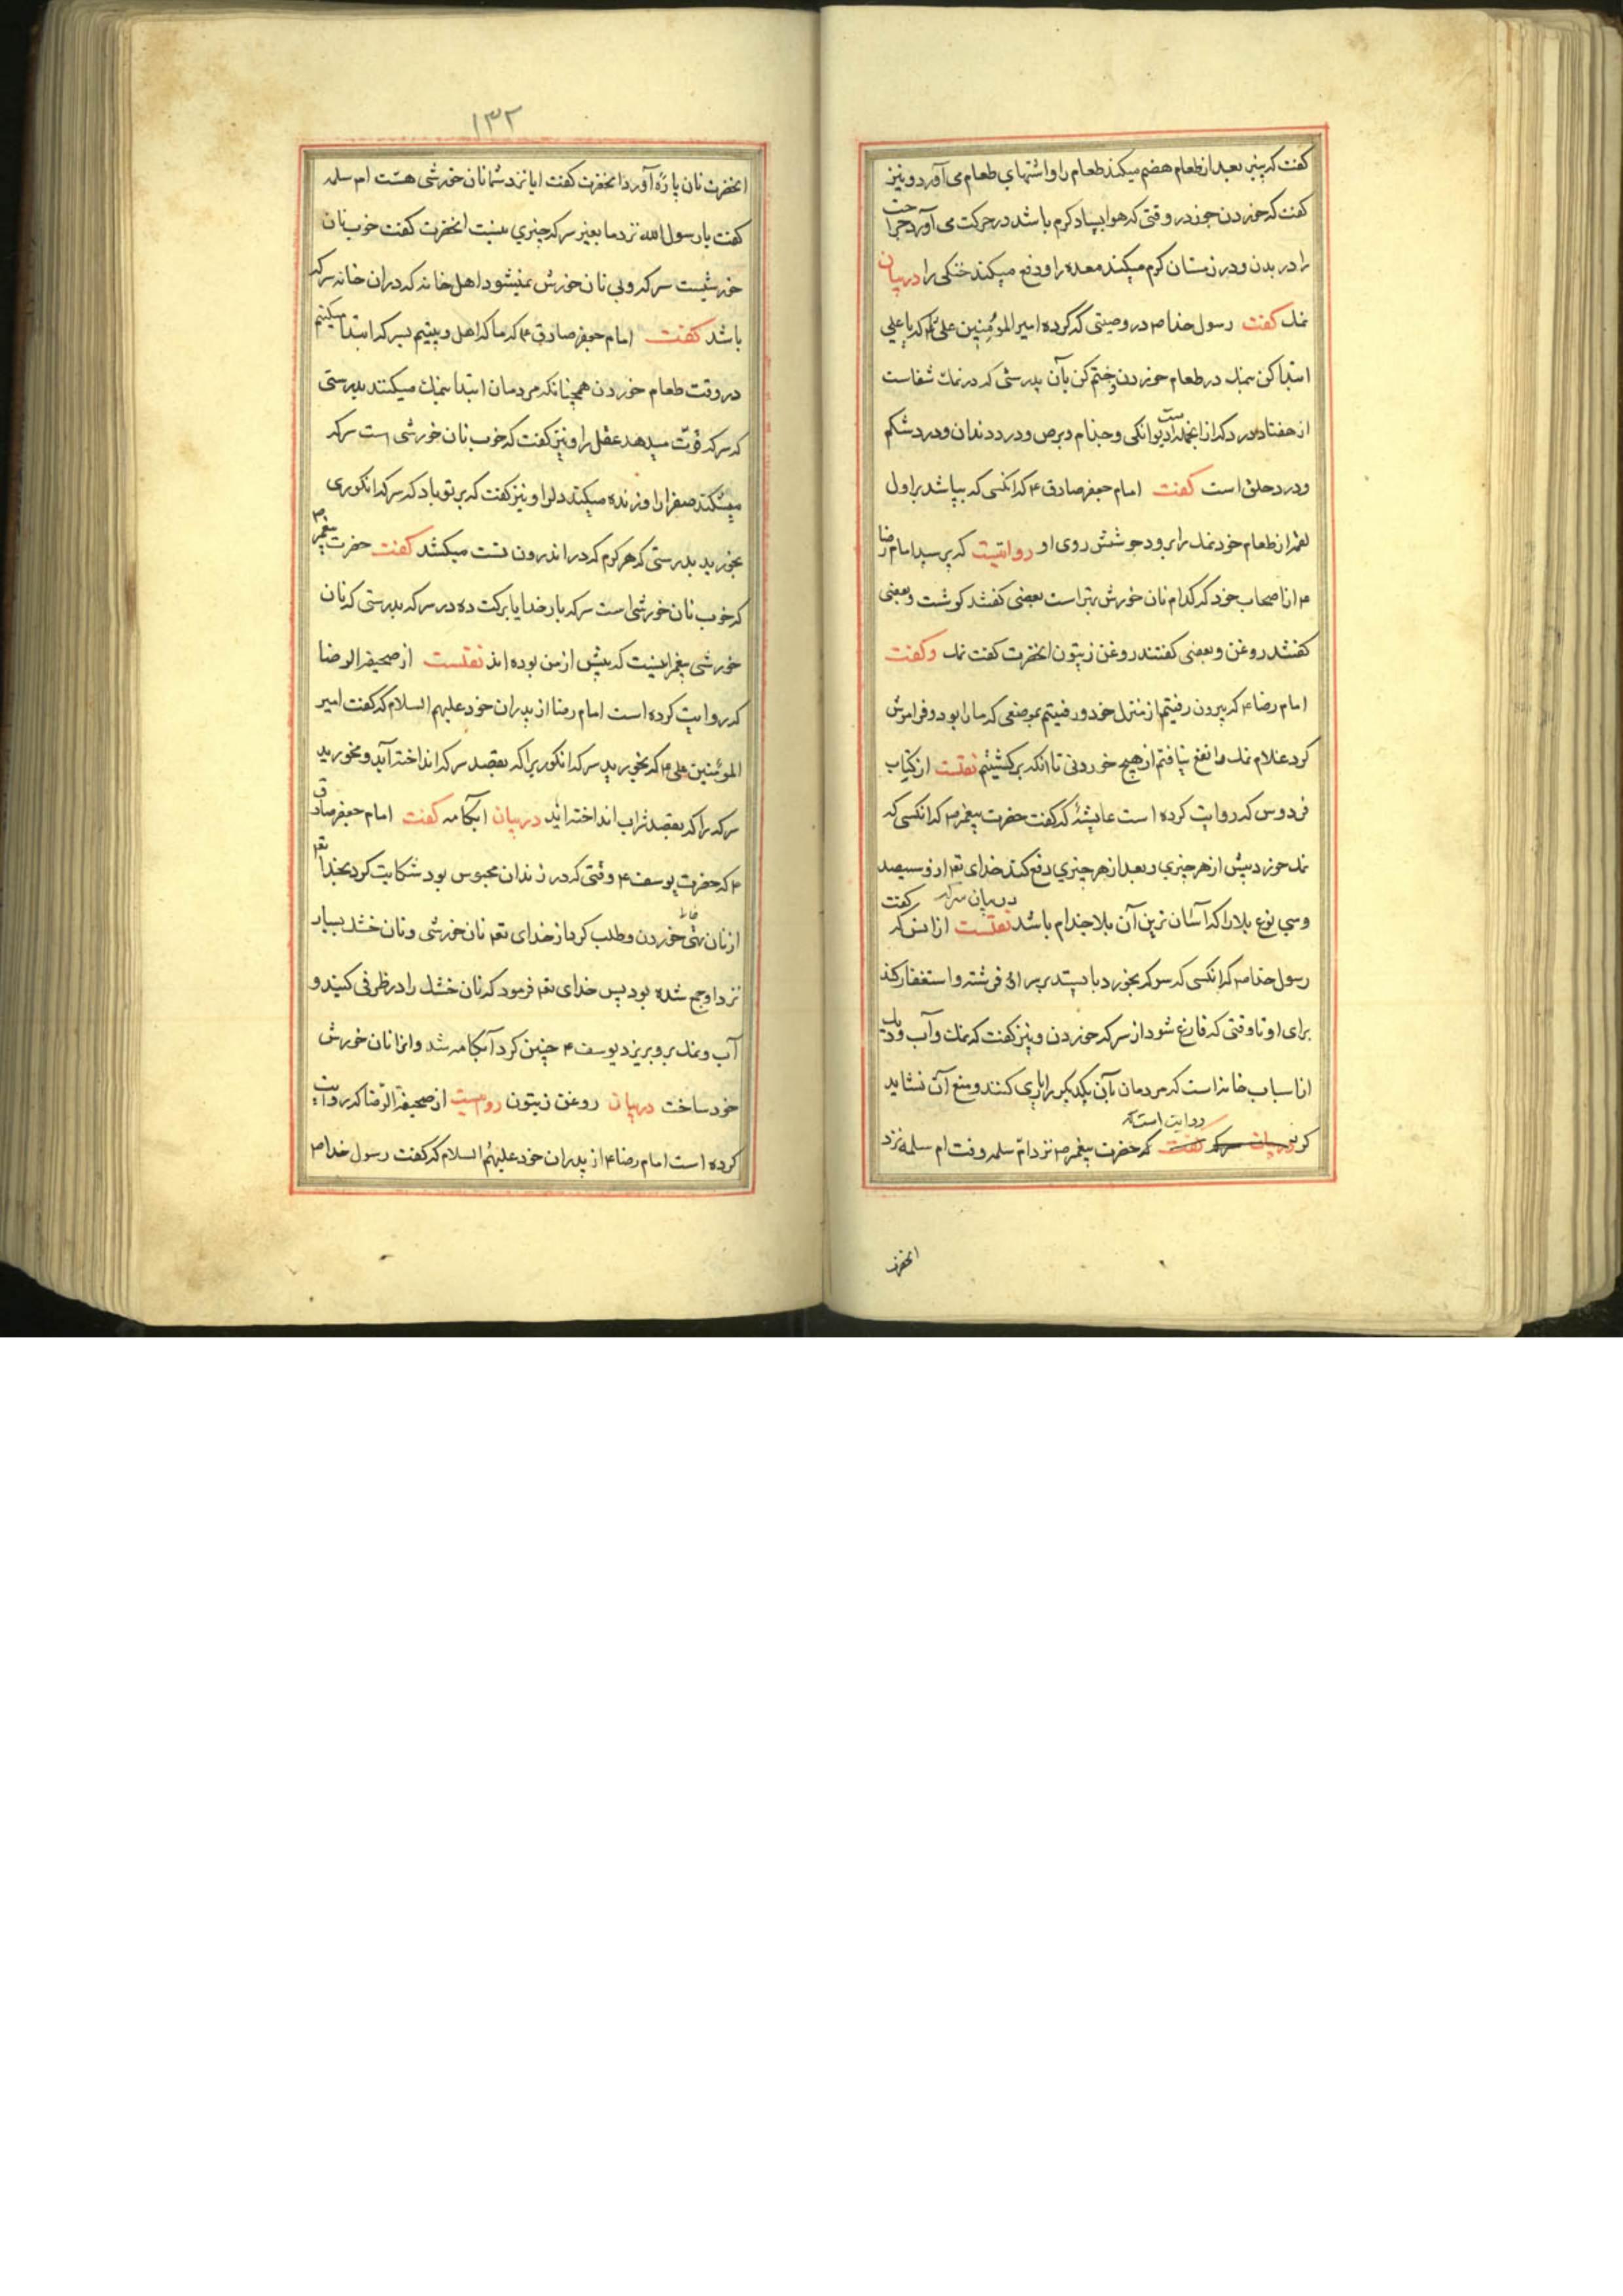 گفت که پنیر بعد از طعام هضم میکند طعام را و اشتهای طعام می آورد و نیز
گفت که خوردن جوز در وقتی که هوا بسیار گرم باشد در حرکت می آورد حرارت
را در بدن و در زمستان گرم میکند معده را و دفع میکند خنکی را در بیان
نمک گفت رسول خدا ص در وصیتی که کرده امیر المؤمنین علی را که یا علی
ابتدا کن بنمک در طعام خوردن و ختم کن بآن بدرستی که در نمک شفاست
از هفتاد درد که از انجمله است دیوانگی و جذام و برص و درد دندان و درد شکم
و درد حلق است گفت امام جعفر صادق ع که انکسی که بپاشد بر اول
لقمه از طعام خود نمک را برود جوشش روی او روایتست که پرسید امام رضا
ع از اصحاب خود که کدام نان خورش بهتر است بعضی گفتند گوشت و بعضی
گفتند روغن و بعضی گفتند روغن زیتون انحضرت گفت نمک و گفت
امام رضا ع که بیرون رفتیم از منزل خود و رفتیم بموضعی که ما را بود و فراموش
کرد غلام نمک را نفع نیافتم از هیچ خوردنی تا انکه برگشتیم نقلست از کتاب
فردوس که روایت کرده است عایشه که گفت حضرت پیغمبر ص که انکسی که
نمک خورد پیش از هر چیزی و بعد از هر چیزی دفع کند خدای تع از و سیصد
در بیان سرکه گفت
و سی نوع بلا را که آسان ترین آن بلا جذام باشد نقلست از انس که
رسول خدا ص که انکسی که سرکه بخورد بایستد بر او فرشته و استغفار کند
برای او تا وقتی که فارغ شود از سرکه خوردن و نیز گفت که نمک و آب و دیک
از اسباب خانه است که مردمان بآن یکدیگر را یاری کنند و منع آن نشاید
روایت است که
کرد در بیان سرکه گفت که حضرت پیغمبر ص نزد ام سلمه رفت ام سلمه نزد
انحضرت
۱۳۲
انحضرت نان پاره آورد انحضرت گفت ایا نزد شما نان خورشی هست ام سلمه
گفت یا رسول الله نزد ما بغیر سرکه چیزی نیست انحضرت گفت خوب نان
خورشیست سرکه و بی نان خورش نمیشود اهل خانه که در ان خانه سرکه
باشد گفت امام جعفر صادق ع که ما که اهل بیتیم بسرکه ابتدا میکنیم
در وقت طعام خوردن همچنانکه مردمان ابتدا بنمک میکنند بدرستی
که سرکه قوت میدهد عقل را و نیز گفت که خوب نان خورشی است سرکه
میشکند صفرا را و زنده میکند دل را و نیز گفت که بر تو باد که سرکه انگوری
بخورید بدرستی که هر کرم که در اندرون تست میکشد گفت حضرت پیغمبر ص
که خوب نان خورشی است سرکه بار خدایا برکت ده در سرکه بدرستی که نان
خورشی پیغمبرانیست که پیش از من بوده اند نقلست از صحیفة الرضا
که روایت کرده است امام رضا از پدران خود علیهم السلام که گفت امیر
المؤمنین علی ع که بخورید سرکه انگوری را که بقصد سرکه انداخته آید و مخورید
سرکه را که بقصد شراب انداخته اید در بیان ابکامه گفت امام جعفر صادق
ع که حضرت یوسف ع وقتی که در زندان محبوس بود شکایت کرد بخدا تع
از نان تهی خوردن و طلب کرد از خدای تع نان خورشی و نان خشک بسیار
نزد او جمع شده بود پس خدای تع فرمود که نان خشک را در ظرفی کنید و
آب و نمک بر و بریزد یوسف ع چنین کرد آبکامه شد و انرا نان خورش
خود ساخت در بیان روغن زیتون رویست از صحیفة الرضا که روایت
کرده است امام رضا ع از پدران خود علیهم السلام که گفت رسول خدا ص